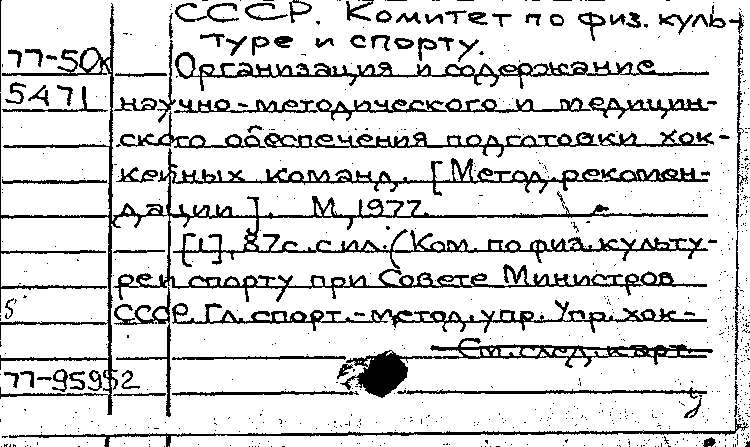 СССР. Комитет по физ. куль-
туре и спорту.
77-50к Организация и содержание
5471 научно-методического и медицин-
ского обеспечения подготовки хок-
кейных команд. [Метод. рекомен-
дации]. М., 1977.
[1], 87с. с ил. (Ком. по физ. культу-
ре и спорту при Совете Министров
5 СССР. Гл. спорт.-метод. упр. Упр. хок-
См. след. карт.
77-95952
у